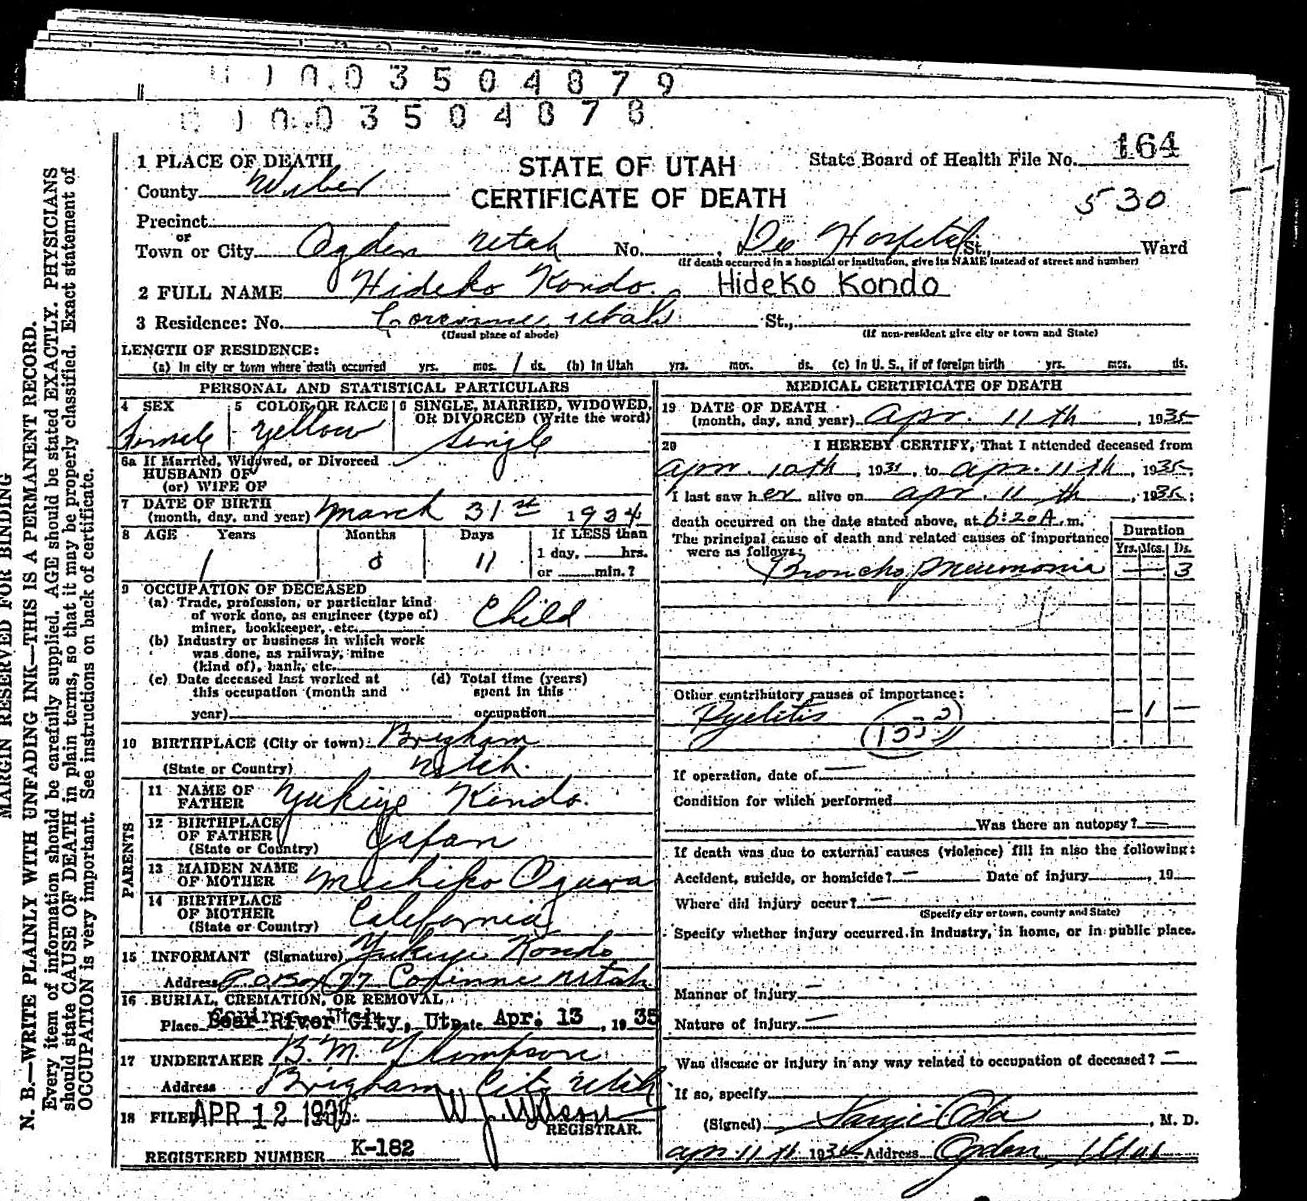 1003504879
1003504878
164
1 PLACE OF DEATH
STATE OF UTAH
State Board of Health File No.
County Weber
CERTIFICATE OF DEATH
530
Precinct
or
Town or City Ogden Utah No. Dee Hospital St., Ward
(If death occurred in a hospital or institution, give its NAME instead of street and number)
2 FULL NAME Hideko Kondo. Hideko Kondo
3 Residence: No. Corinne Utah St.,
(Usual place of abode) (If non-resident give city or town and State)
LENGTH OF RESIDENCE:
(a) In city or town where death occurred yrs. mos. 1 ds. (b) In Utah yrs. mos. ds. (c) In U. S., if of foreign birth yrs. mos. ds.
PERSONAL AND STATISTICAL PARTICULARS
4 SEX
Female
5 COLOR OR RACE
Yellow
6 SINGLE, MARRIED, WIDOWED,
OR DIVORCED (Write the word)
Single
6a If Married, Widowed, or Divorced
HUSBAND OF
(or) WIFE OF
7 DATE OF BIRTH
(month, day, and year) March 31st 1934
8 AGE Years Months Days If LESS than
1 day, hrs.
or min.?
1 0 11
9 OCCUPATION OF DECEASED
(a) Trade, profession, or particular kind
of work done, as engineer (type of)
miner, bookkeeper, etc. Child
(b) Industry or business in which work
was done, as railway, mine
(kind of), bank, etc.
(c) Date deceased last worked at
this occupation (month and
year)
(d) Total time (years)
spent in this
occupation
10 BIRTHPLACE (City or town) Brigham
(State or Country) Utah.
PARENTS
11 NAME OF
FATHER Yukiye Kondo.
12 BIRTHPLACE
OF FATHER
(State or Country) Japan
13 MAIDEN NAME
OF MOTHER Michiko Ogura
14 BIRTHPLACE
OF MOTHER
(State or Country) California
15 INFORMANT (Signature) Yukiye Kondo
Address P.O. Box 77 Corinne Utah
16 BURIAL, CREMATION, OR REMOVAL
Place Bear River City, Ut. Date Apr. 13, 1935
17 UNDERTAKER B. M. Thompson
Address Brigham City Utah
18 FILED APR 12 1935 W J Wilson
REGISTRAR.
REGISTERED NUMBER K-182
MEDICAL CERTIFICATE OF DEATH
19 DATE OF DEATH
(month, day, and year) Apr. 11th, 1935
20 I HEREBY CERTIFY, That I attended deceased from
Apr. 10th, 1935, to Apr. 11th, 1935.
I last saw her alive on Apr. 11th, 1935;
death occurred on the date stated above, at 6:20 A. m.
The principal cause of death and related causes of importance
were as follows:
Duration
Yrs. Mos. Ds.
Broncho pneumonia — 3
Other contributory causes of importance:
Pyelitis — 1 —
If operation, date of —
Condition for which performed
Was there an autopsy? —
If death was due to external causes (violence) fill in also the following:
Accident, suicide, or homicide? — Date of injury , 19
Where did injury occur? —
(Specify city or town, county and State)
Specify whether injury occurred in industry, in home, or in public place.
Manner of injury —
Nature of injury —
Was disease or injury in any way related to occupation of deceased? —
If so, specify
(Signed) , M. D.
Apr. 11th 1935 Address Ogden, Utah
MARGIN RESERVED FOR BINDING
N. B.—WRITE PLAINLY WITH UNFADING INK—THIS IS A PERMANENT RECORD.
Every item of information should be carefully supplied. AGE should be stated EXACTLY. PHYSICIANS
should state CAUSE OF DEATH in plain terms, so that it may be properly classified. Exact statement of
OCCUPATION is very important. See instructions on back of certificate.